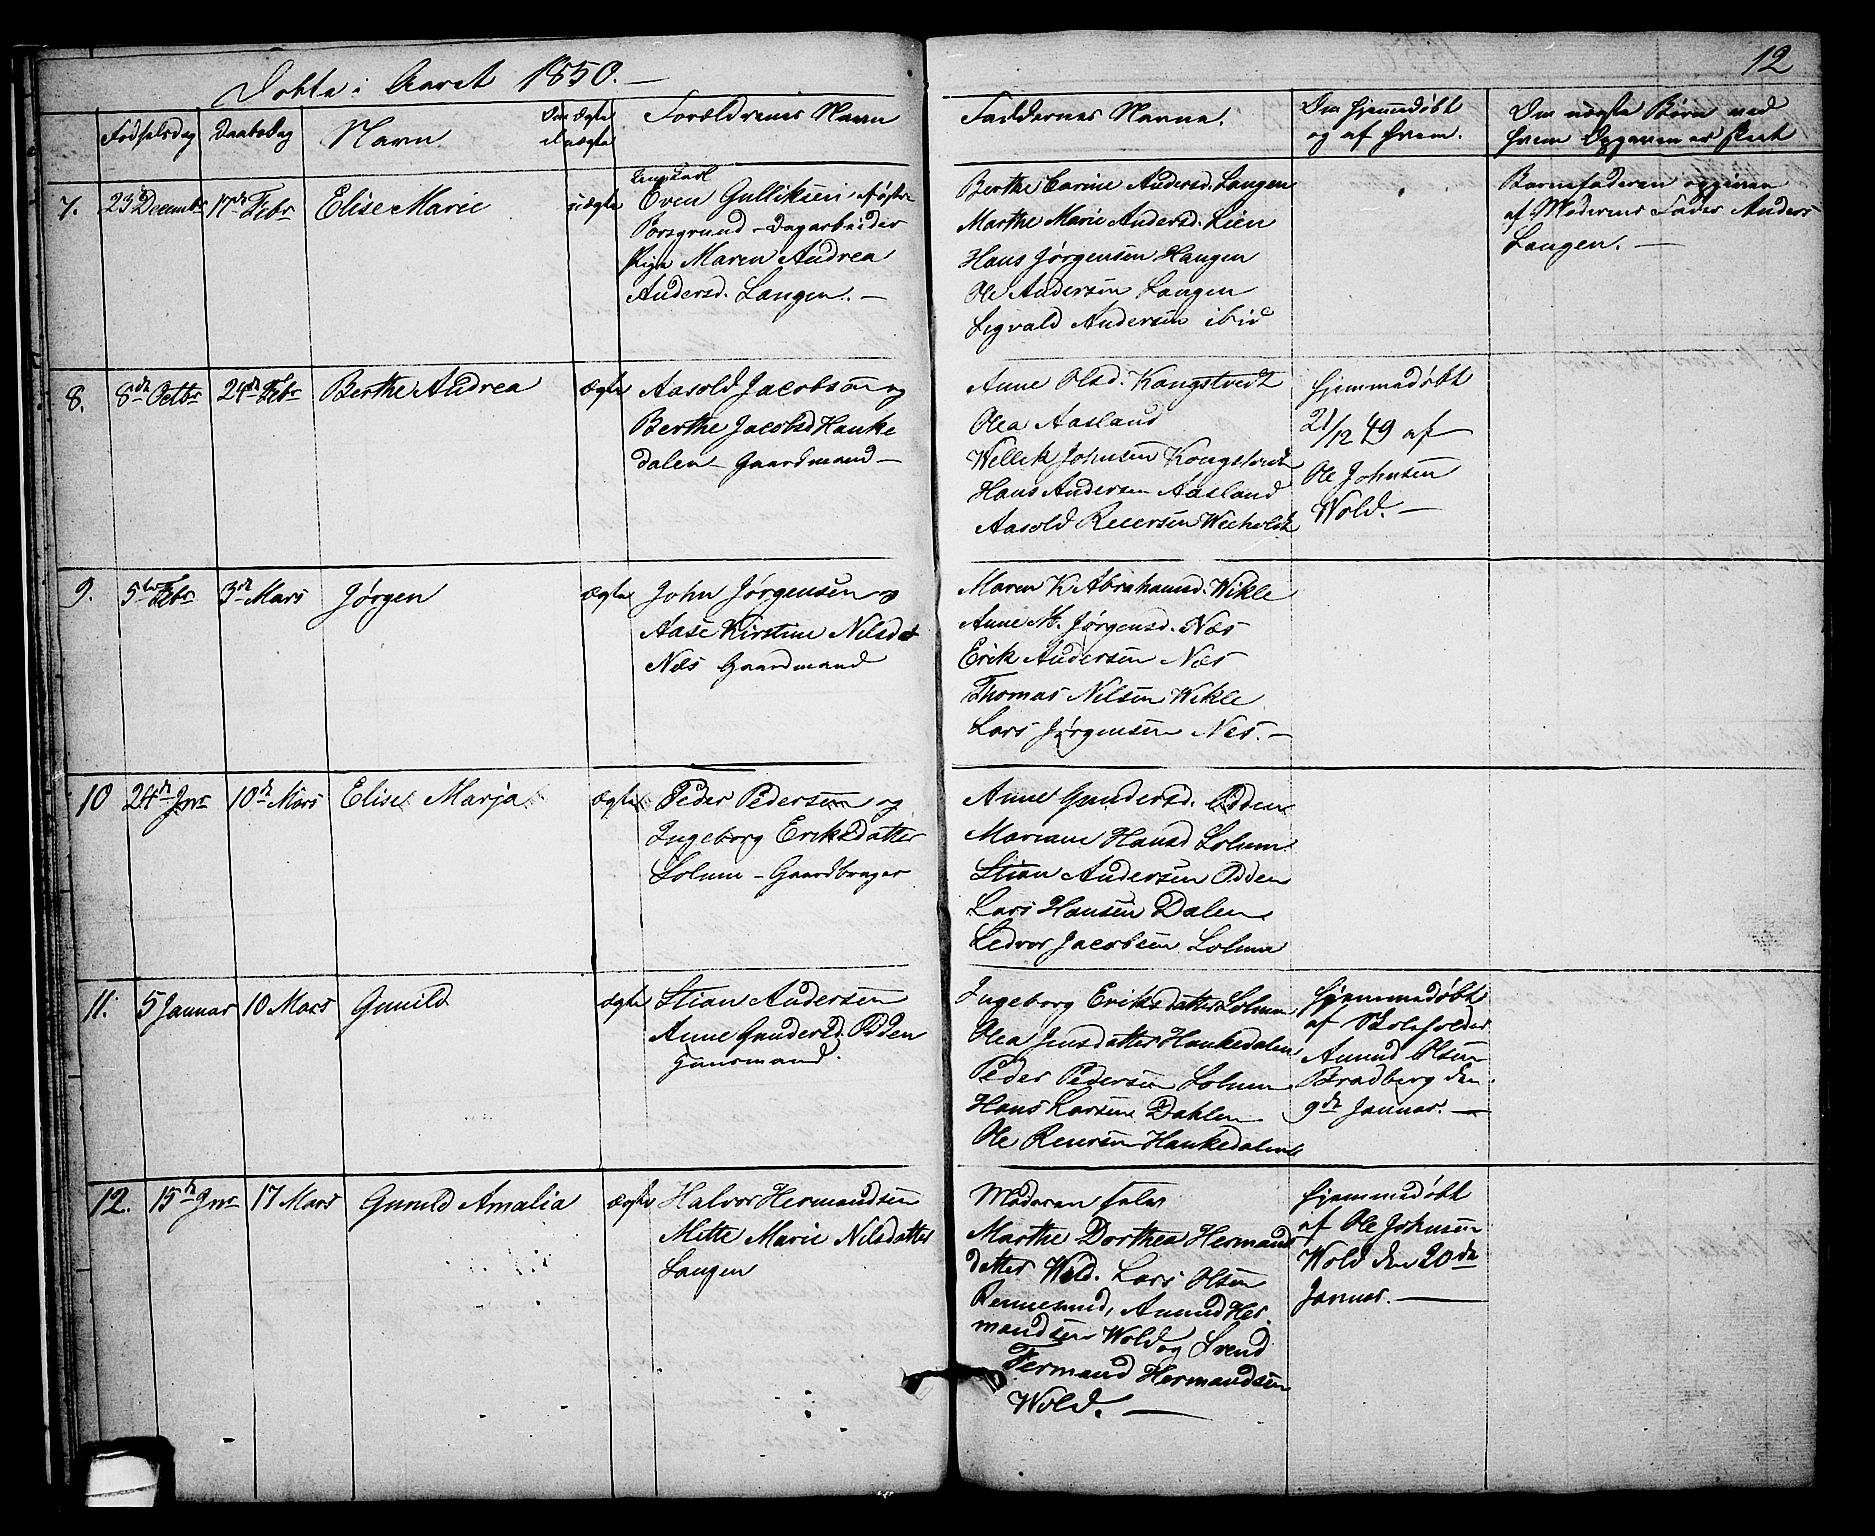 12
Døbte i Aaret 1850. —
Fødselsdag Daabsdag Navn Om ægte el uægte Forældrenes Navn Faddernes Navne. Om hjemmedøbt og af hvem. Om uægte Børn med hvem Opgaven er skeet
7. 23 Decembr 17de Febr Elise Marie uægte
Ungkarl
Even Gulliksen
Porsgrund – Dagarbeider
Pige Maren Andrea
Andersd. Langen. —
Berthe Carine Andersd. Langen
Marthe Marie Andersd. Lien
Hans Jørgensen Haugen
Ole Andersen Langen
Sigvald Andersen ibid
Barnefaderen opgiven
af Moderens Fader Anders
Langen. —
8. 8de Octbr 24de Febr Berthe Andrea ægte
Aasold Jacobsen og
Berthe Jacobsd Hauke
dalen – Gaardmand –
Anne Olsd. Kongstvedt
Olea Aasland
Wellek Johnsen Kongstvedt
Hans Andersen Aasland
Aasold Reiersen
hjemmedøbt
21/12 49 af
Ole Johnsen
Wold. —
9. 5te Febr 3de Mars Jørgen ægte
John Jørgensen og
Aase Kirstine Nilsdat
Næs Gaardmand
Maren K. Abrahamsd. Wikle
Anne M. Jørgensd. Næs
Erik Andersen Næs
Thomas Nilsen Wikle
Lars Jørgensen Næs. —
10 24de Jnr 10de Mars Elise Marja ægte
Peder Pedersen og
Ingeborg Eriksdatter
Solum – Gaardbruger
Anne Gundersd. Odden
Mariane Hansd Solum
Stian Andersen Odden
Lars Hansen Dalen
Ledvor Jacobsen Solum
11. 5 Januar 10 Mars Gunild ægte
Stian Andersen
Anne Gundersd. Odden
Huusmand.
Ingeborg Eriksdatter Solum
Olea Jensdatter Haukedalen
Peder Pedersen Solum
Hans Larsen Dahlen
Ole Reiersen Haukedalen
hjemmedøbt
af Skoleholder
Amund Olsen
Bradberg den
9de Januar. —
12. 15de Jnr 17 Mars Gunild Amalia ægte
Halvor Hermandsen
Mette Marie Nilsdatter
Langen
Moderen selv
Marthe Dorthea Hermands
datter Wold. Lars Olsen
Rennesund, Amund Her
mandsen Wold og Svend
Fermand Hermandsen
Wold. —
hjemmedøbt
af Ole Johnsen
Wold den 20de
Januar. —